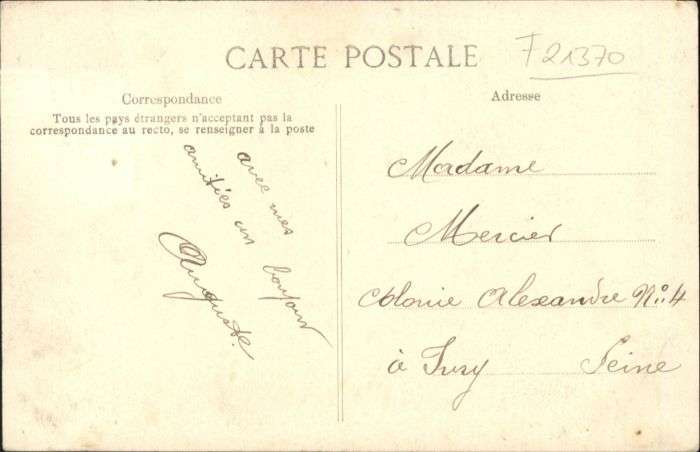 CARTE POSTALE
F 21370
Correspondance
Tous les pays étrangers n'acceptent pas la
correspondance au recto, se renseigner à la poste
avec mes
amitiés un bonjour
Auguste.
Adresse
Madame
Mercier
Colonie Alexandre No. 4
à Ivry Seine